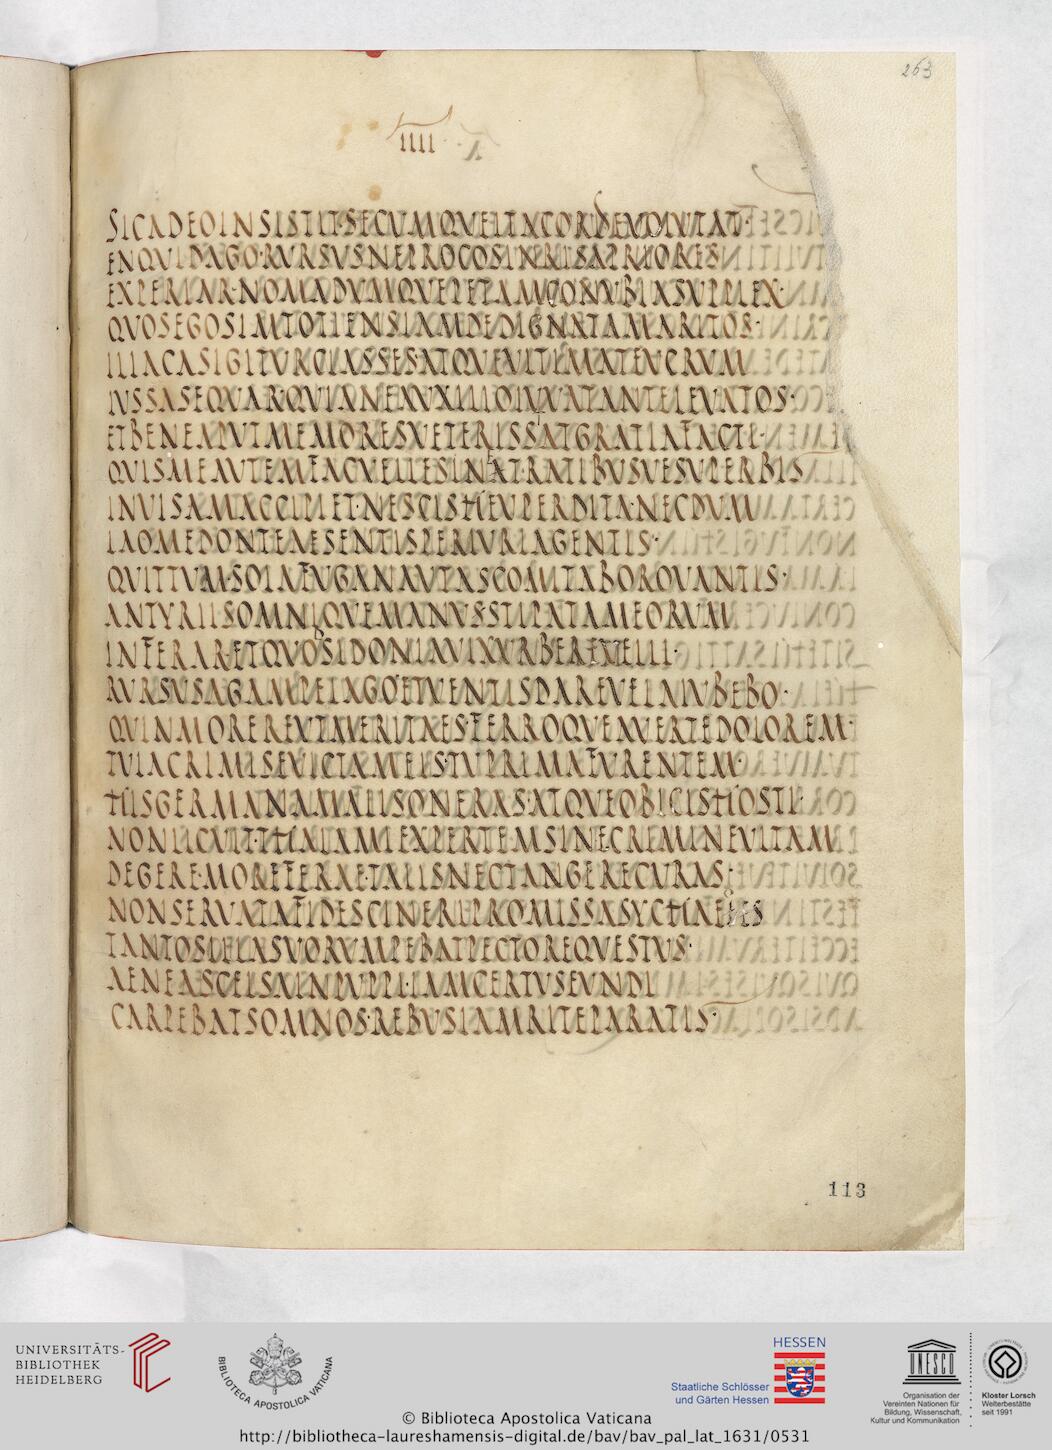 263
IIII
SICADEOINSISTIT·SECUMQUEITACORDEUOLUTAT·
ENQUIDAGO·RURSUSNEPROCOSINRISAPRIORES
EXPERIAR·NOMADUMQUEPETAMCONUBIASUPPLEX·
QUOSEGOSIMTOTIENSIAMDEDIGNATAMARITOS·
ILIACASIGITURCLASSES·ATQUEULTIMATEUCRUM
IUSSASEQUAR·QUIANEAUXILIOIUUATANTELEUATOS·
ETBENEAPUTMEMORESUETERISSATGRATIAFACTI·
QUISMEAUTEMFACUELLESINAT·RATIBUSUESUPERBIS
INUISAMACCIPIET·NESCISHEUPERDITA·NECDUM
LAOMEDONTEAESENTISPERIURIAGENTIS·
QUITTUM·SOLAFUGANAUTASCOMITABOROUANTIS·
ANTYRIISOMNIQUEMANUSSTIPATAMEORUM
INFERAR·ETQUOSIDONIAUIXURBEREUELLI·
RURSUSAGAMPELAGOETUENTISDAREUELAIUBEBO·
QUINMOREREUTMERITAES·FERROQUEAUERTEDOLOREM·
TULACRIMISEUICTAMEIS·TUPRIMAFURENTEM·
HISGERMANAMALISONERAS·ATQUEOBICISHOSTI·
NONLICUIT·THALAMIEXPERTEMSINECRIMINEUITAM
DEGERE·MOREFERAE·TALISNECTANGERECURAS·
NONSERUATAFIDESCINERIPROMISSASYCHAEO
TANTOSILLASUORUMPEBATPECTOREQUESTUS·
AENEASCELSAINPUPPI·IAMCERTUSEUNDI
CARPEBATSOMNOS·REBUSIAMRITEPARATIS·
113
UNIVERSITÄTS-
BIBLIOTHEK
HEIDELBERG
BIBLIOTECA APOSTOLICA VATICANA
HESSEN
Staatliche Schlösser
und Gärten Hessen
UNESCO
Organisation der
Vereinten Nationen für
Bildung, Wissenschaft,
Kultur und Kommunikation
Kloster Lorsch
Welterbestätte
seit 1991
© Biblioteca Apostolica Vaticana
http://bibliotheca-laureshamensis-digital.de/bav/bav_pal_lat_1631/0531